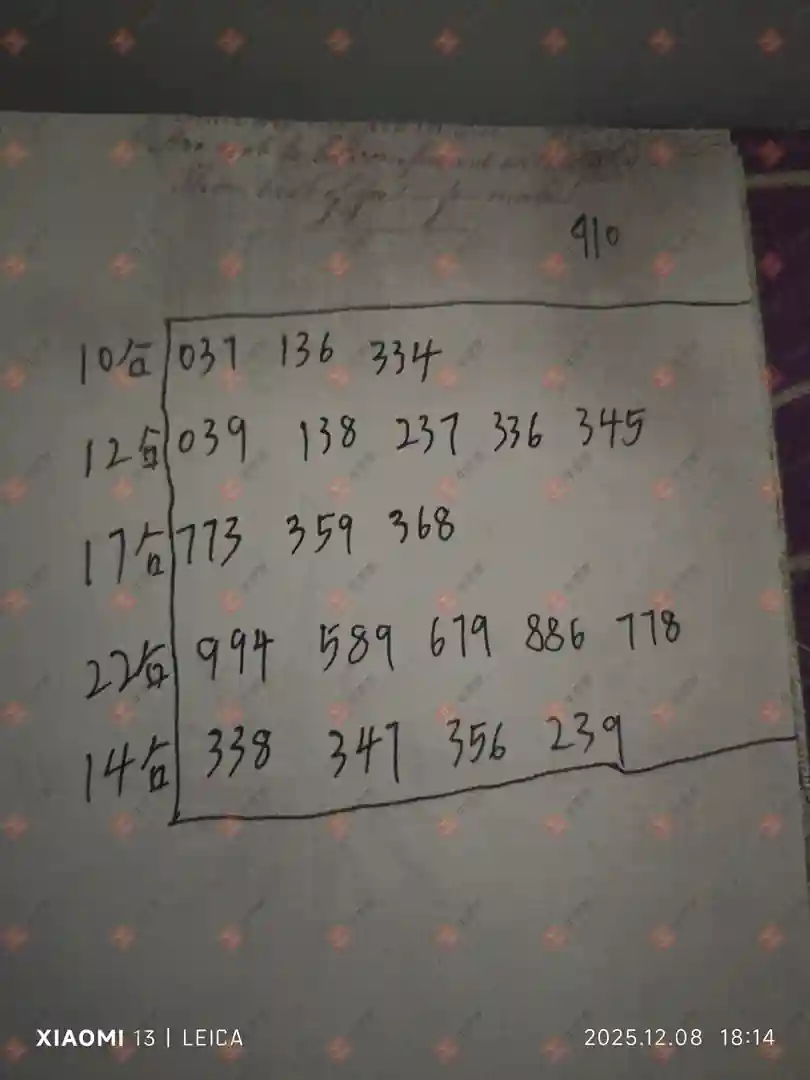 910
10合 037 136 334
12合 039 138 237 336 345
17合 773 359 368
22合 994 589 679 886 778
14合 338 347 356 239
XIAOMI 13 | LEICA
2025.12.08 18:14